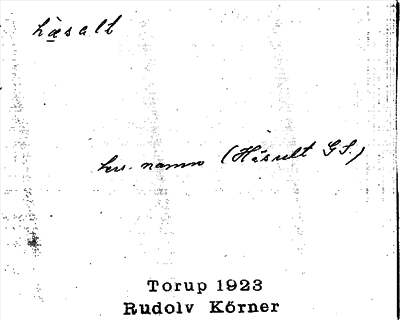 hæsalt
hrs. namn (Håsult G.S.)
Torup 1923
Rudolv Körner